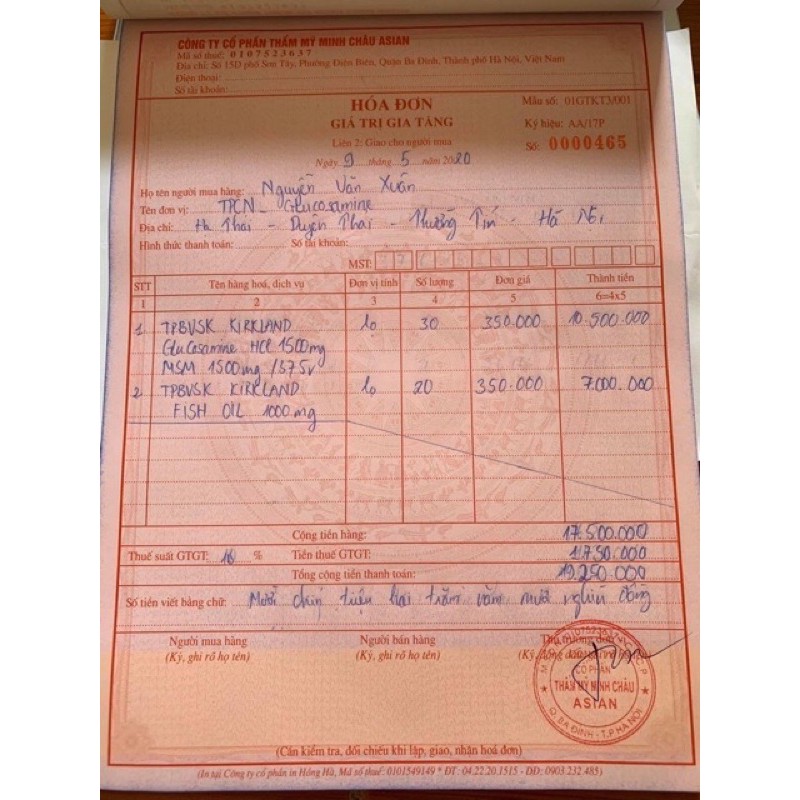 CÔNG TY CỔ PHẦN THẨM MỸ MINH CHÂU ASIAN
Mã số thuế: 0107523637
Địa chỉ: Số 15D phố Sơn Tây, Phường Điện Biên, Quận Ba Đình, Thành phố Hà Nội, Việt Nam
Điện thoại:
Số tài khoản:
HÓA ĐƠN
GIÁ TRỊ GIA TĂNG
Liên 2: Giao cho người mua
Ngày 9 tháng 5 năm 2020
Mẫu số: 01GTKT3/001
Ký hiệu: AA/17P
Số: 0000465
Họ tên người mua hàng: Nguyễn Văn Xuân
Tên đơn vị: TPCN - Glucosamine
Địa chỉ: Hạ Thái - Duyên Thái - Thường Tín - Hà Nội
Hình thức thanh toán: Số tài khoản:
MST:
STT Tên hàng hoá, dịch vụ Đơn vị tính Số lượng Đơn giá Thành tiền
1 2 3 4 5 6=4x5
1 TPBVSK KIRKLAND lọ 30 350.000 10.500.000
Glucosamine HCl 1500mg
MSM 1500mg /375v
2 TPBVSK KIRKLAND lọ 20 350.000 7.000.000
FISH OIL 1000mg
Cộng tiền hàng: 17.500.000
Thuế suất GTGT: 10 % Tiền thuế GTGT: 1.750.000
Tổng cộng tiền thanh toán: 19.250.000
Số tiền viết bằng chữ: Mười chín triệu hai trăm năm mươi nghìn đồng
Người mua hàng Người bán hàng Thủ trưởng đơn vị
(Ký, ghi rõ họ tên) (Ký, ghi rõ họ tên) (Ký, đóng dấu, ghi rõ họ tên)
CỔ PHẦN
THẨM MỸ MINH CHÂU
ASIAN
Q. BA ĐÌNH - T.P HÀ NỘI
(Cần kiểm tra, đối chiếu khi lập, giao, nhận hoá đơn)
(In tại Công ty cổ phần in Hồng Hà, Mã số thuế: 0101549149 * ĐT: 04.22.20.1515 - DĐ: 0903.232.485)